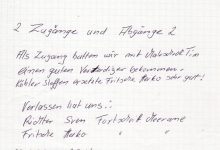 2 Zugänge und Abgänge 2
Als Zugang hatten wir mit Tim
einen guten Verteidiger bekommen.
Köhler Steffen ersetzte Fritsche Marko sehr gut!
Verlassen hat uns:
Richter Sven Fortschritt Meerane
Fritsche Marko " "